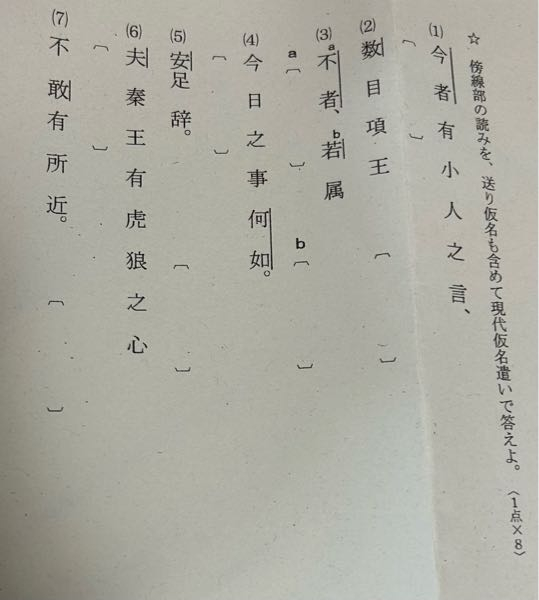 ☆ 傍線部の読みを、送り仮名も含めて現代仮名遣いで答えよ。〈1点×8〉
(1) 今者有小人之言、
〔 〕
(2) 数目項王 〔 〕
(3) a不者、b若属
a〔 〕 b〔 〕
(4) 今日之事何如。
〔 〕
(5) 安足辞。 〔 〕
(6) 夫秦王有虎狼之心
〔 〕
(7) 不敢有所近。 〔 〕